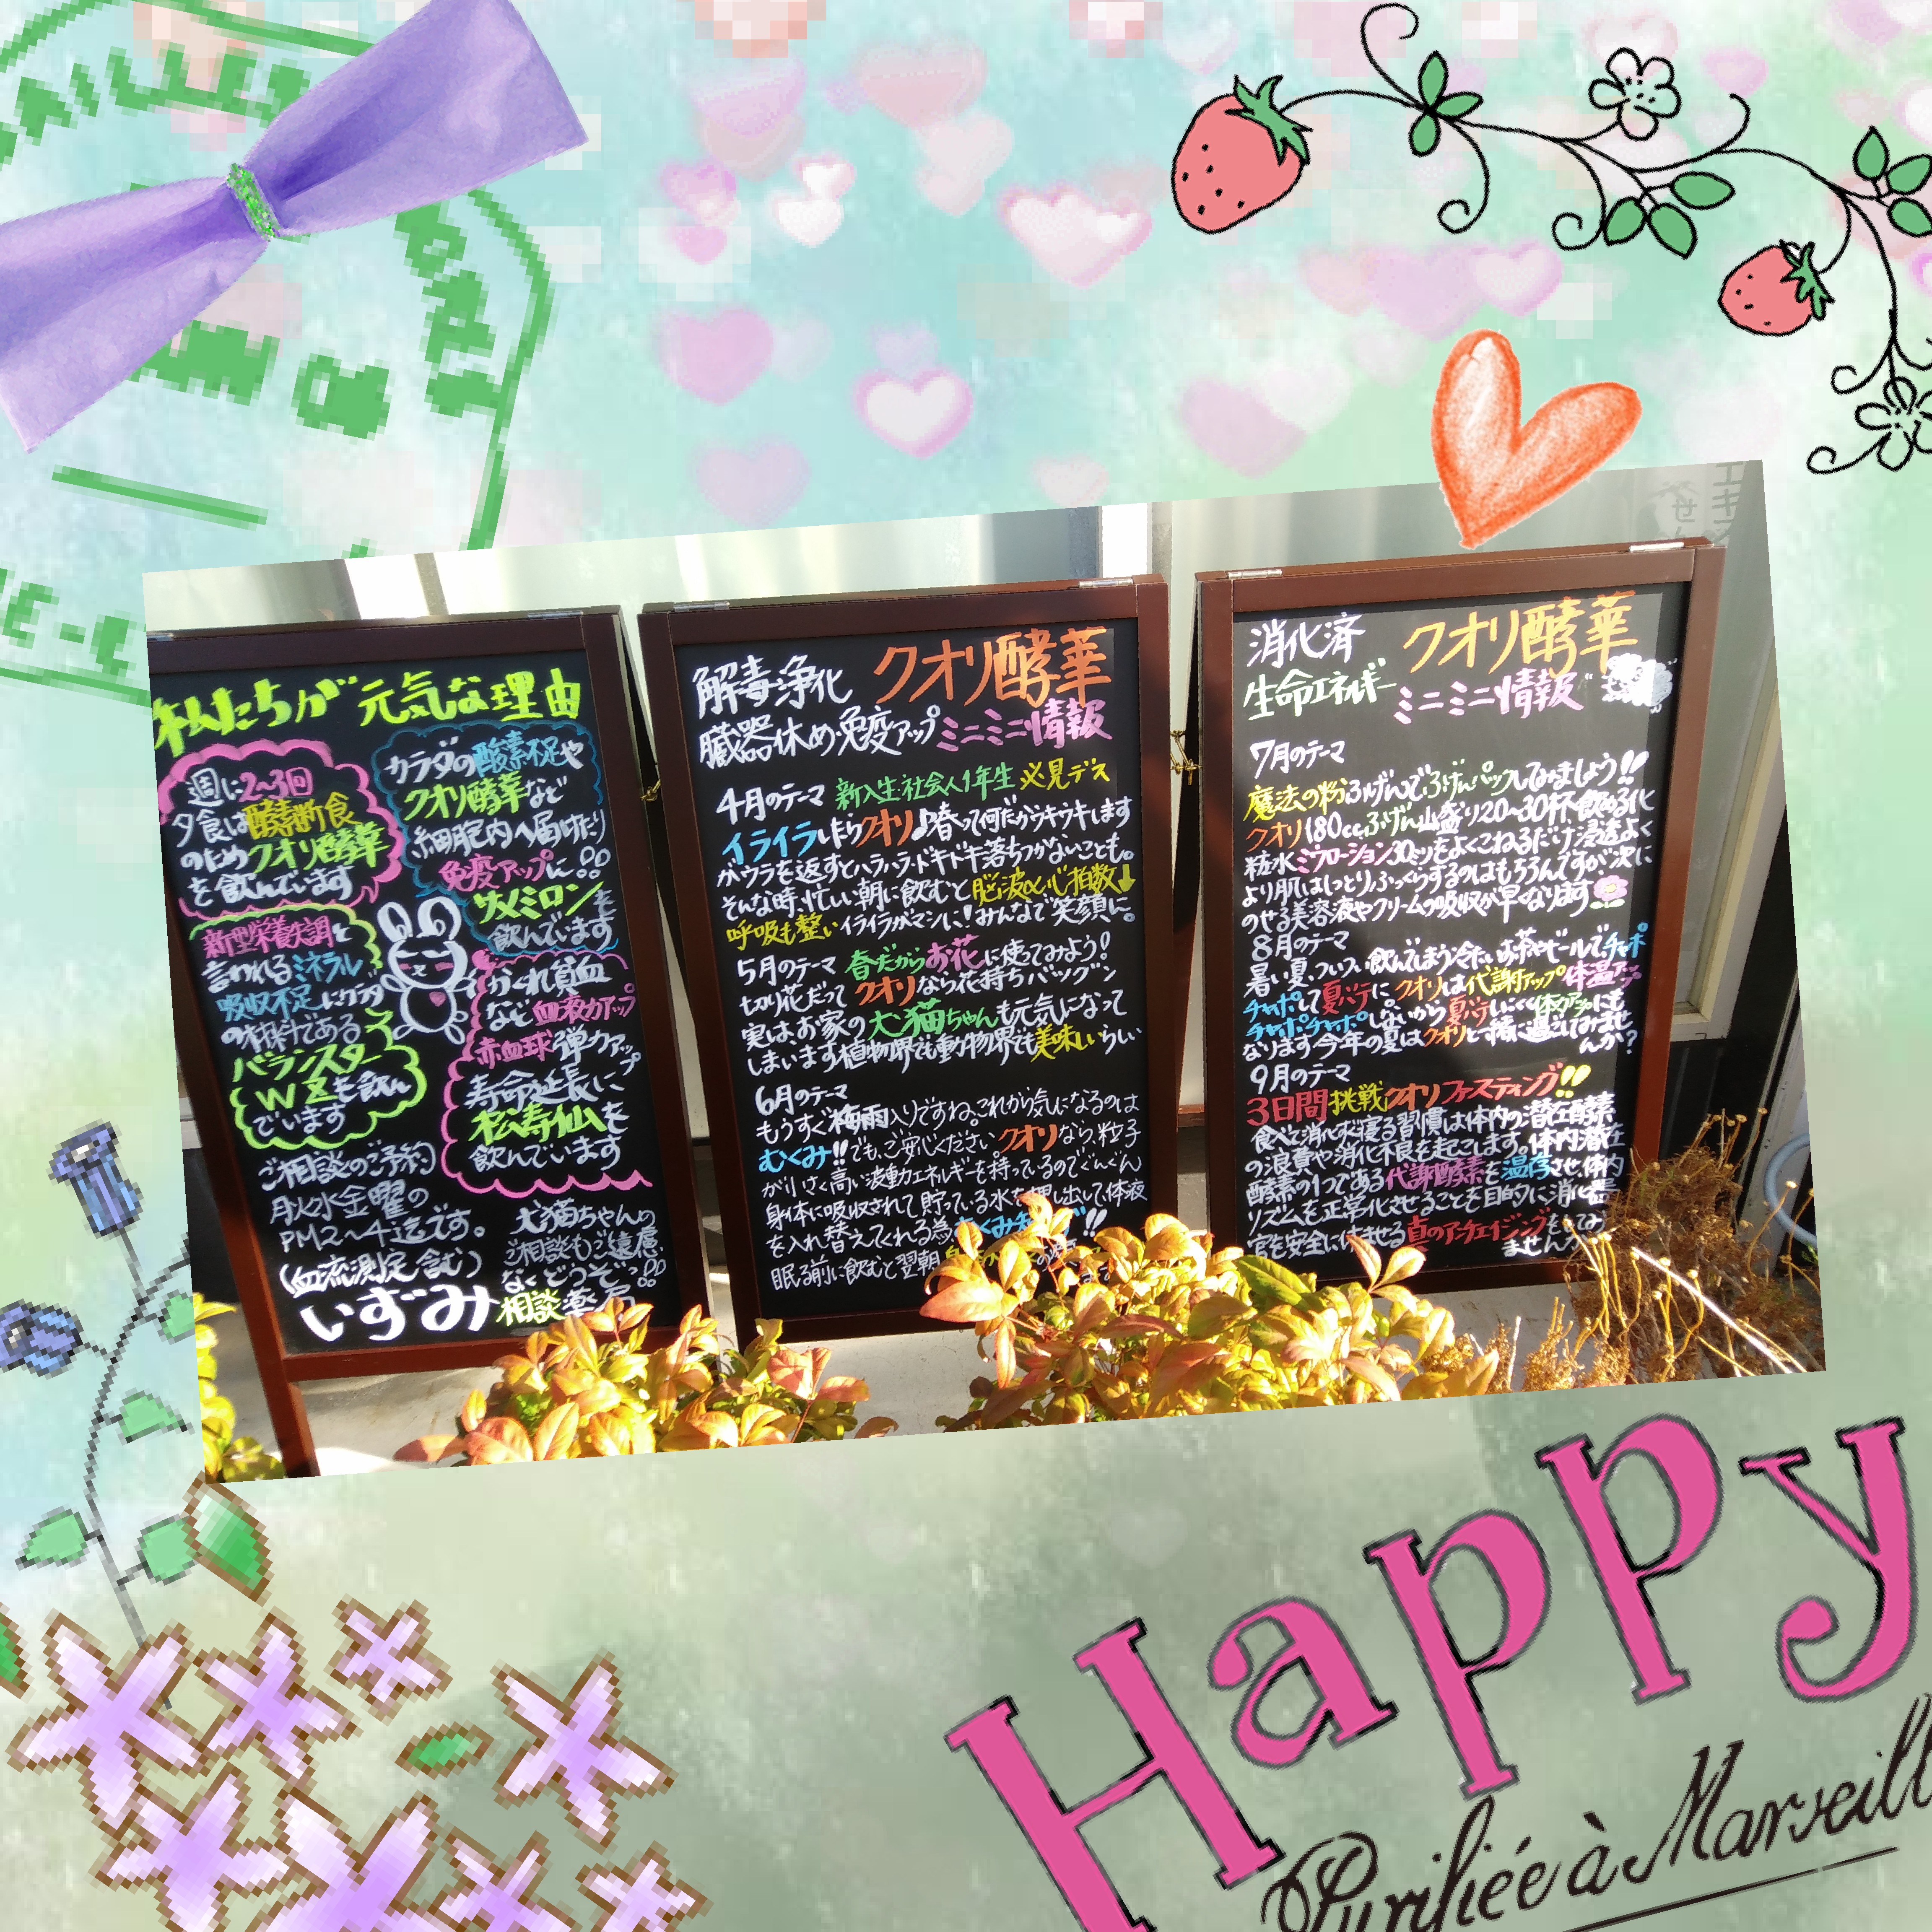 私たちが元気な理由
週に2~3回
夕食は酵素断食
のためクオリ酵華
を飲んでいます
カラダの酸素不足や
クオリ酵華など
細胞内へ届けたり
免疫アップに!!
サメミロンを
飲んでいます
新型栄養失調と
言われるミネラル
吸収不足
の材料である
バランスター
WZを飲ん
でいます
かくれ貧血
など血液力アップ
赤血球弾力アップ
寿命延長に
松寿仙を
飲んでいます
ご相談のご予約
月火水金曜の
PM2~4迄です。
(血流測定含む)
犬猫ちゃんの
ご相談もご遠慮
なくどうぞっ!!
いずみ相談薬局
解毒・浄化 クオリ酵華
臓器休め・免疫アップ ミニミニ情報
4月のテーマ 新入生社会人1年生 必見デス
イライラしたらクオリ♪春って何だかウキウキします
がウラを返すとハラハラ・ドキドキ落ちつかないことも。
そんな時、忙しい朝に飲むと脳波や心拍数↓
呼吸も整いイライラがマシに!みんなで笑顔に。
5月のテーマ 春だからお花に使ってみよう!
切り花だってクオリなら花持ちバツグン
実は、お家の犬猫ちゃんも元気になって
しまいます植物界でも動物界でも美味しいらしい
6月のテーマ
もうすぐ梅雨入りですね。これから気になるのは
むくみ!!でも、ご安心ください。クオリなら、粒子
が小さく高い波動エネルギーを持っているのでぐんぐん
身体に吸収されて貯っている水を押し出して、体液
を入れ替えてくれる為、むくみ
眠る前に飲むと翌朝
消化済 クオリ酵華
生命エネルギー ミニミニ情報
7月のテーマ
魔法の粉ふげんでふげんパックしてみましょう!!
クオリ180cc、ふげん山盛り20~30杯、飲める化
粧水ミウローション30ミリをよくこねるだけ浸透よく
より肌はしっとりふっくらするのはもちろんですが、次に
のせる美容液やクリームの吸収が早くなります
8月のテーマ
暑い夏、ついつい飲んでしまう冷たいお茶やビールで、チャポ
チャポして夏バテに クオリは代謝アップ 体温アップ
チャポチャポしないから夏バテしにくく体力アップにも
なります今年の夏はクオリと一緒に過ごしてみませ
んか?
9月のテーマ
3日間挑戦クオリファスティング!!
食べて消化せず寝る習慣は体内の潜在酵素
の浪費や消化不良を起こします。体内潜在
酵素の1つである代謝酵素を温存させ、体内
リズムを正常化させることを目的に消化器
官を安全に休ませる真のアンチエイジングをしてみ
ませんか
Happy
Purifiée à Marseill